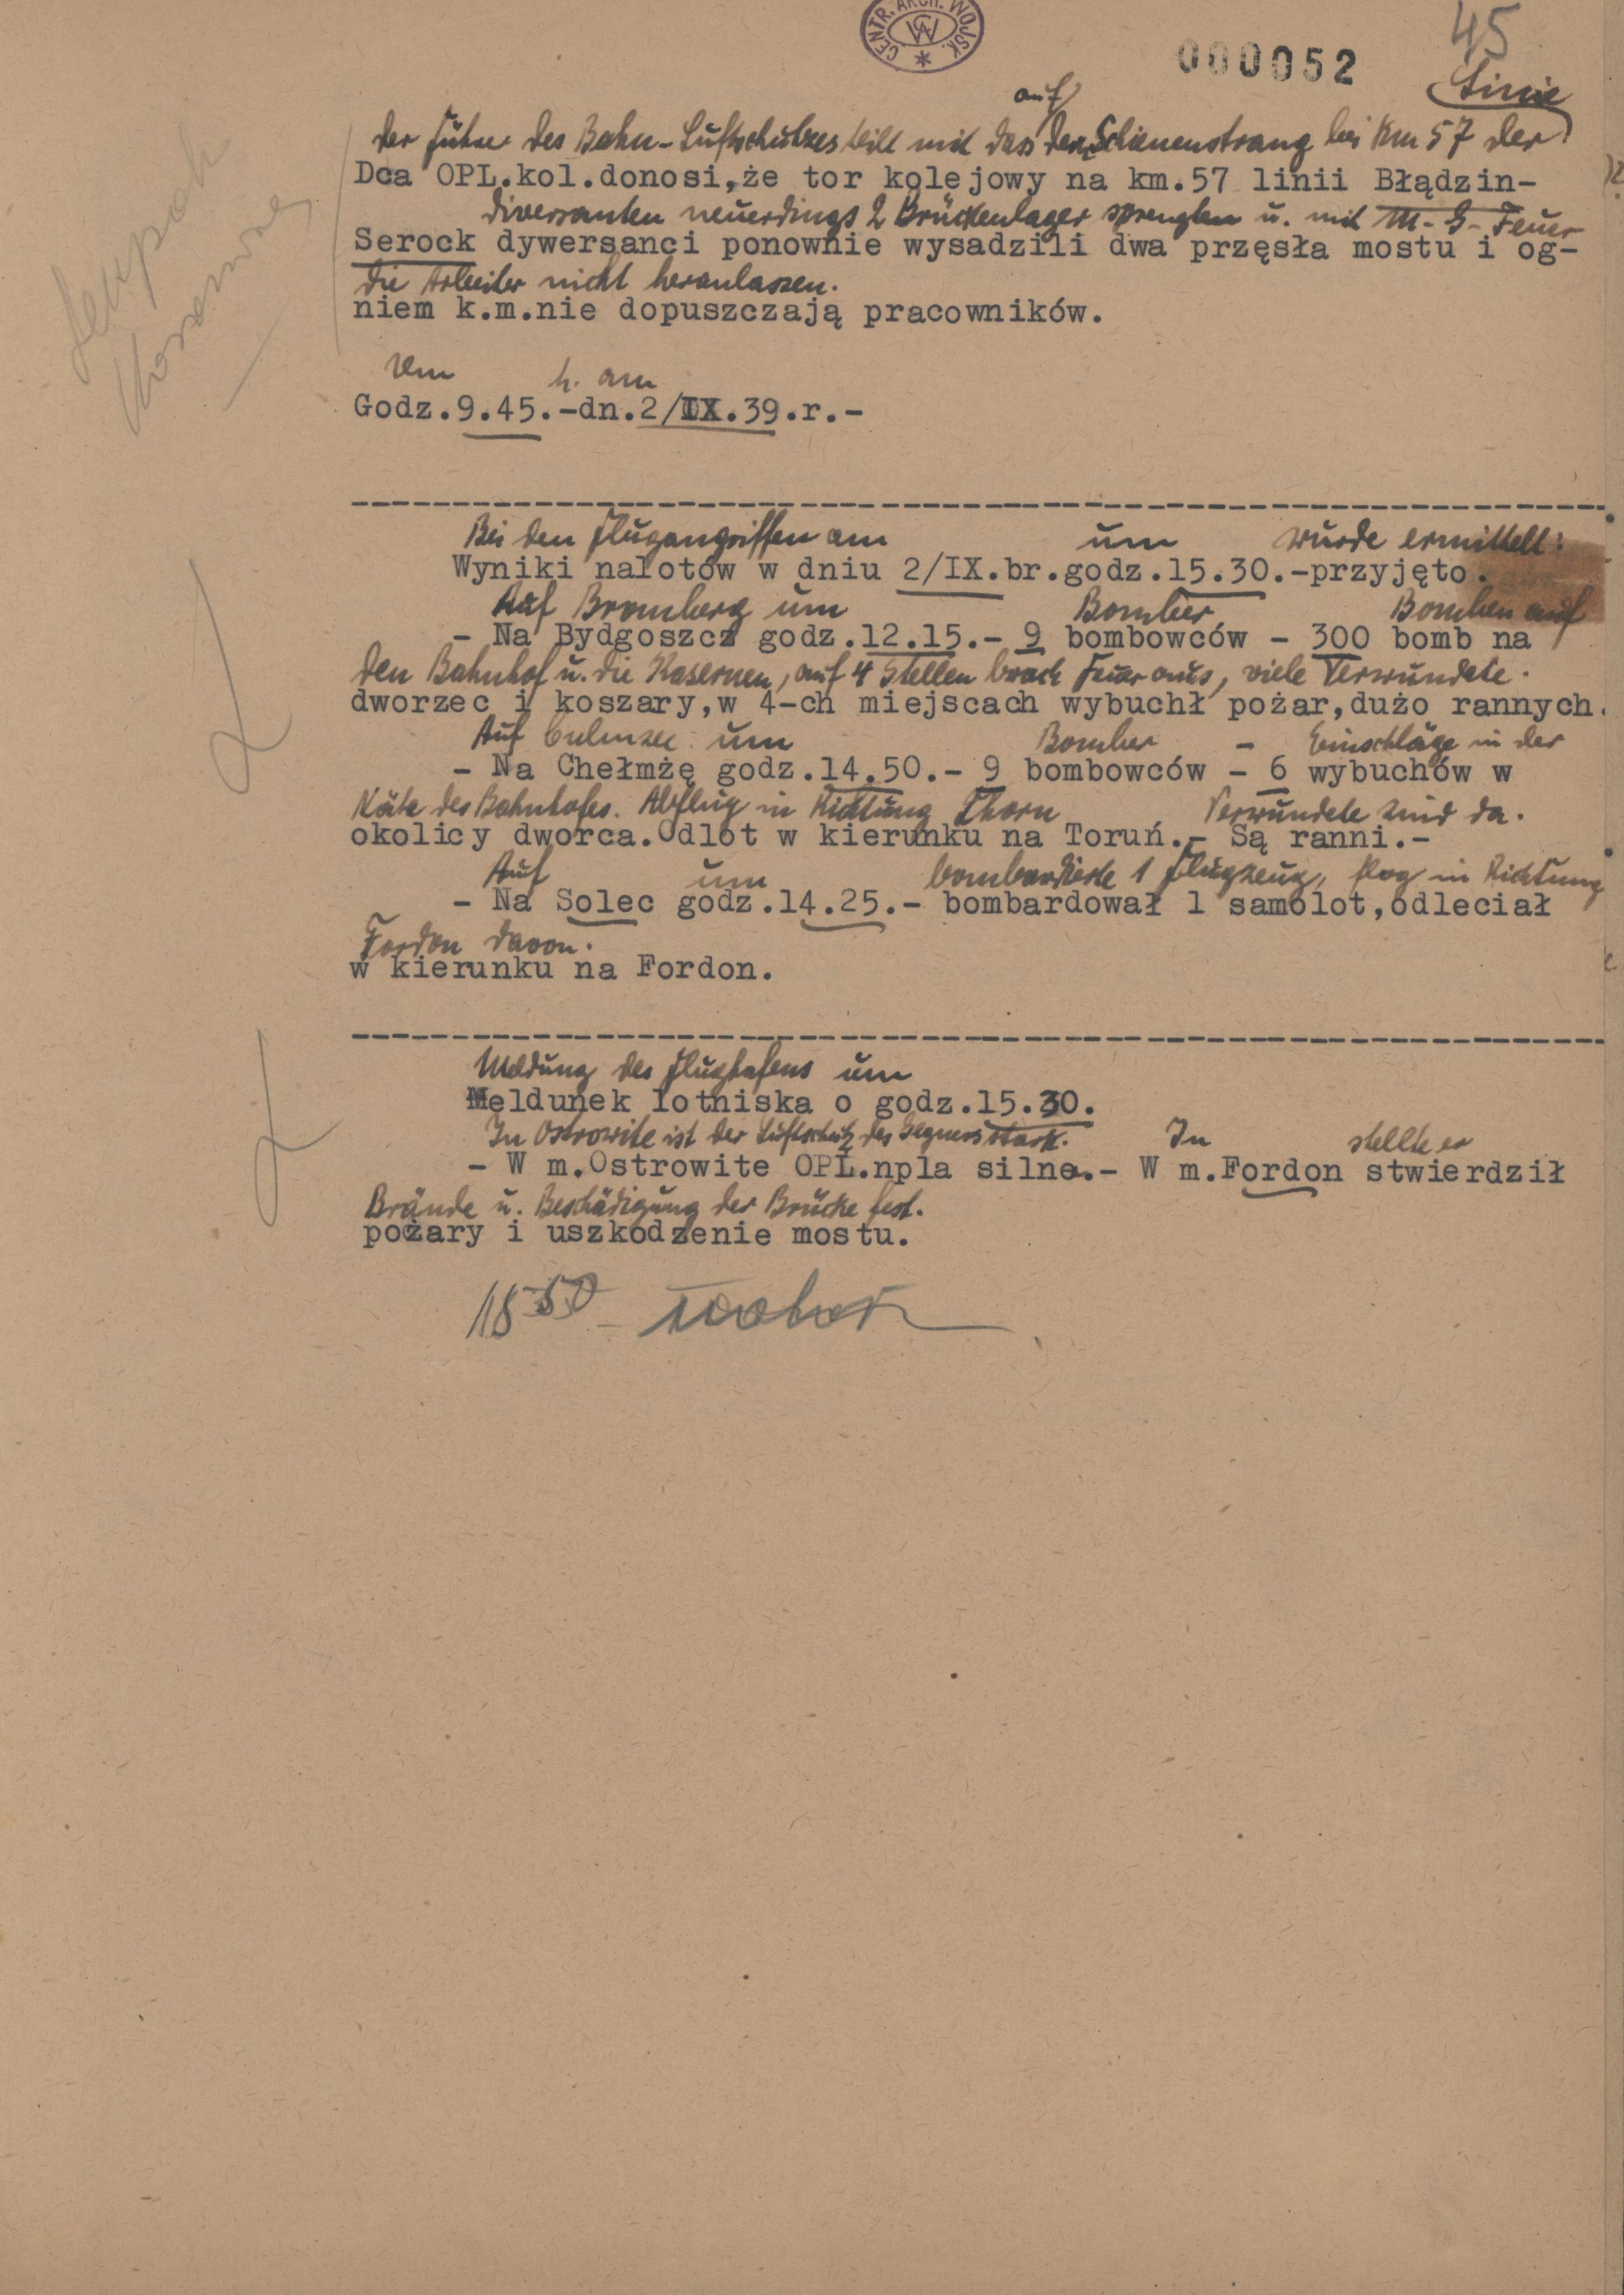 CENTR. ARCH. WOJSK.
CAW
000052
45
Linie
auf
Der Führer des Bahn-Luftschutzes teilt mit dass den Schienenstrang bei Km 57 der
Dca OPL.kol.donosi,że tor kolejowy na km.57 linii Błądzin-
Diversanten neuerdings 2 Brückenlager sprengten u. mit M.-G-Feuer
Serock dywersanci ponownie wysadzili dwa przęsła mostu i og-
die Arbeiter nicht heranlassen.
niem k.m.nie dopuszczają pracowników.
Um h. am
Godz.9.45.-dn.2/IX.39.r.-
Bei den Flugangriffen am um wurde ermittelt:
Wyniki nalotów w dniu 2/IX.br.godz.15.30.-przyjęto.
Auf Bromberg um Bomber Bomben auf
- Na Bydgoszcz godz.12.15.- 9 bombowców - 300 bomb na
den Bahnhof u. die Kasernen, auf 4 Stellen brach Feuer aus, viele Verwundete.
dworzec i koszary,w 4-ch miejscach wybuchł pożar,dużo rannych.
Auf Culmsee um Bomber - Einschläge in der
- Na Chełmżę godz.14.50.- 9 bombowców - 6 wybuchów w
Näte des Bahnhofes. Abflug in Richtung Thorn Verwundete sind da.
okolicy dworca.Odlot w kierunku na Toruń.- Są ranni.-
Auf um bombardierte 1 Flugzeug, flog in Richtung
- Na Solec godz.14.25.- bombardował 1 samolot,odleciał
Fordon davon.
w kierunku na Fordon.
Meldung des Flughafens um
Meldunek lotniska o godz.15.30.
In Ostrowite ist der Luftschutz des Gegners stark. In stellte er
- W m.Ostrowite OPL.npla silne.- W m.Fordon stwierdził
Brände u. Beschädigung der Brücke fest.
pożary i uszkodzenie mostu.
18 50